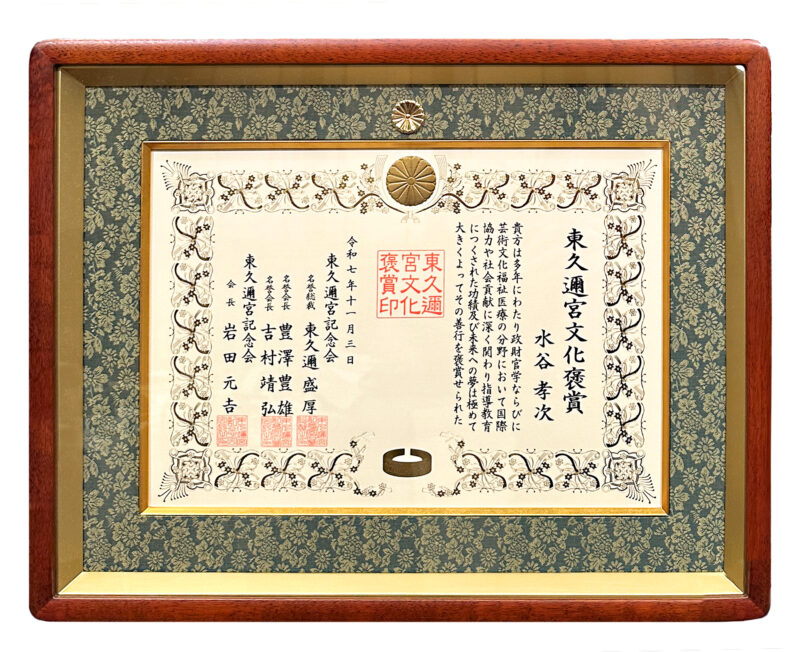 東久邇宮文化褒賞
水谷孝次
貴方は多年にわたり政財官学ならびに
芸術文化福祉医療の分野において国際
協力や社会貢献に深く関わり指導教育
につくされた功績及び未来への夢は極めて
大きくよってその善行を褒賞せられた
東久邇
宮文化
褒賞印
令和七年十一月三日
東久邇宮記念会
名誉総裁 東久邇盛厚
名誉会長 豊澤豊雄
名誉会長 吉村靖弘
東久邇宮記念会
会長 岩田元吉